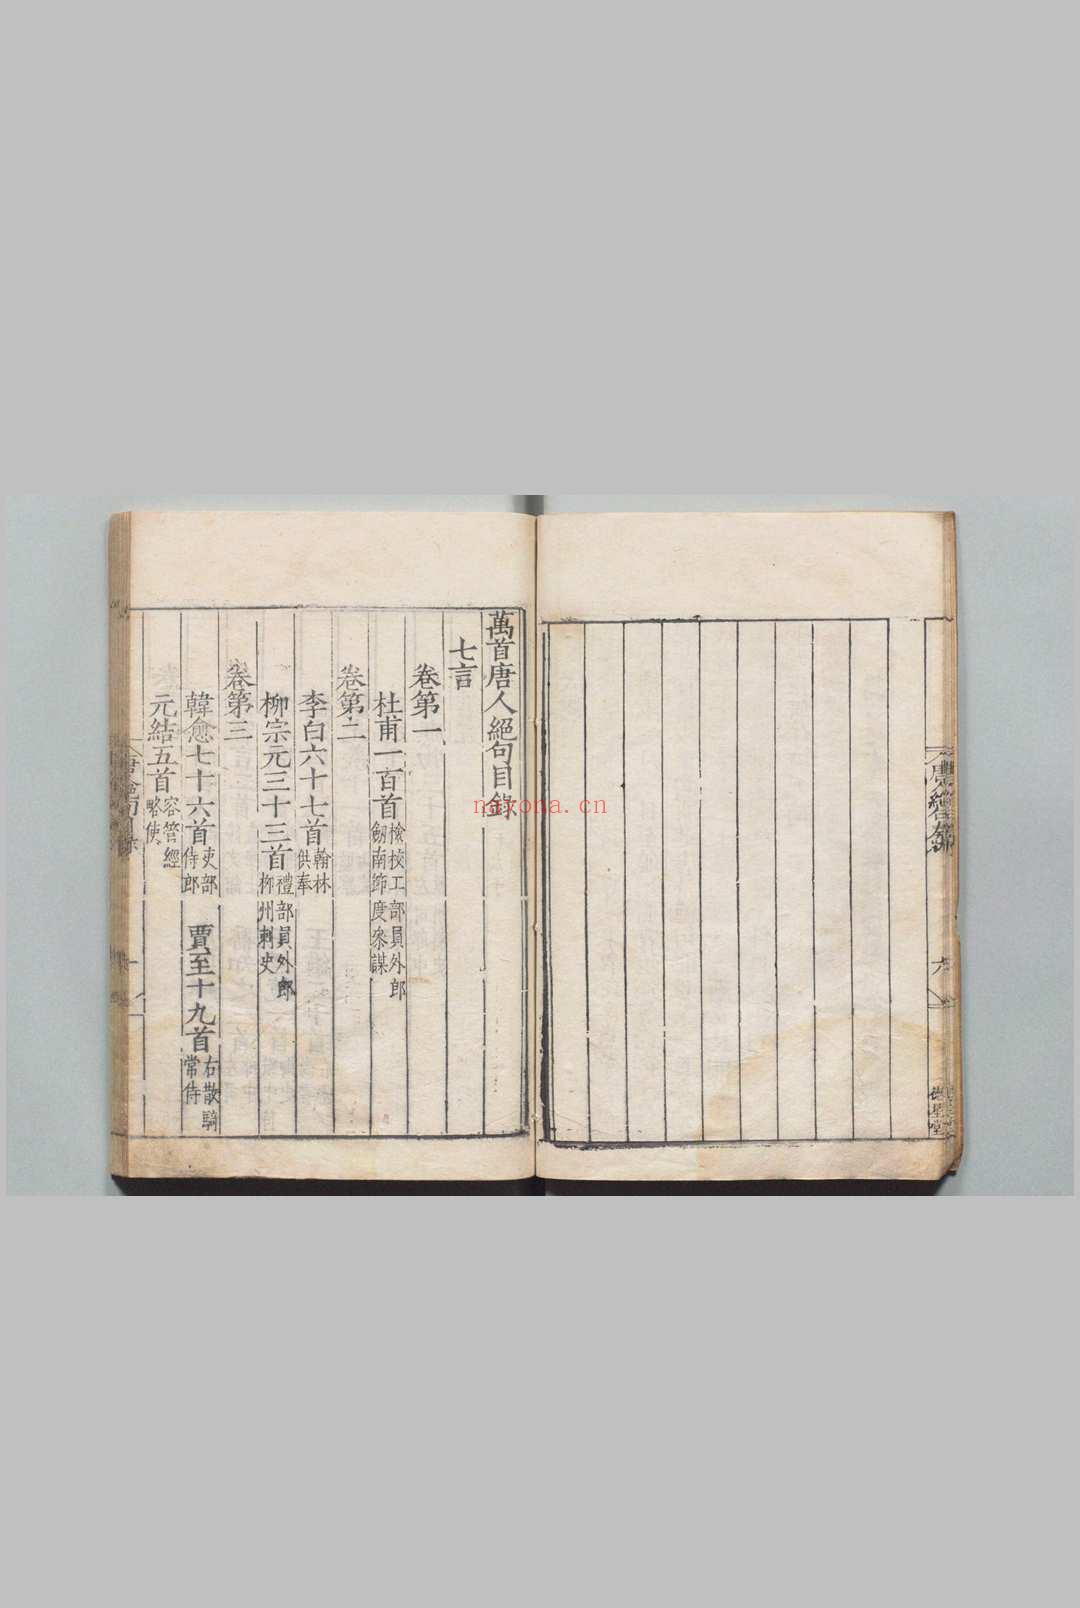 萬首唐人絕句目錄
七言
卷第一
杜甫一百首檢校工部員外郎劒南節度叅謀
卷第二
李白六十七首翰林供奉
柳宗元三十三首禮部員外郎柳州刺史
卷第三
韓愈七十六首吏部侍郎 賈至十九首右散騎常侍
元結五首容管經略使
nayona.cn